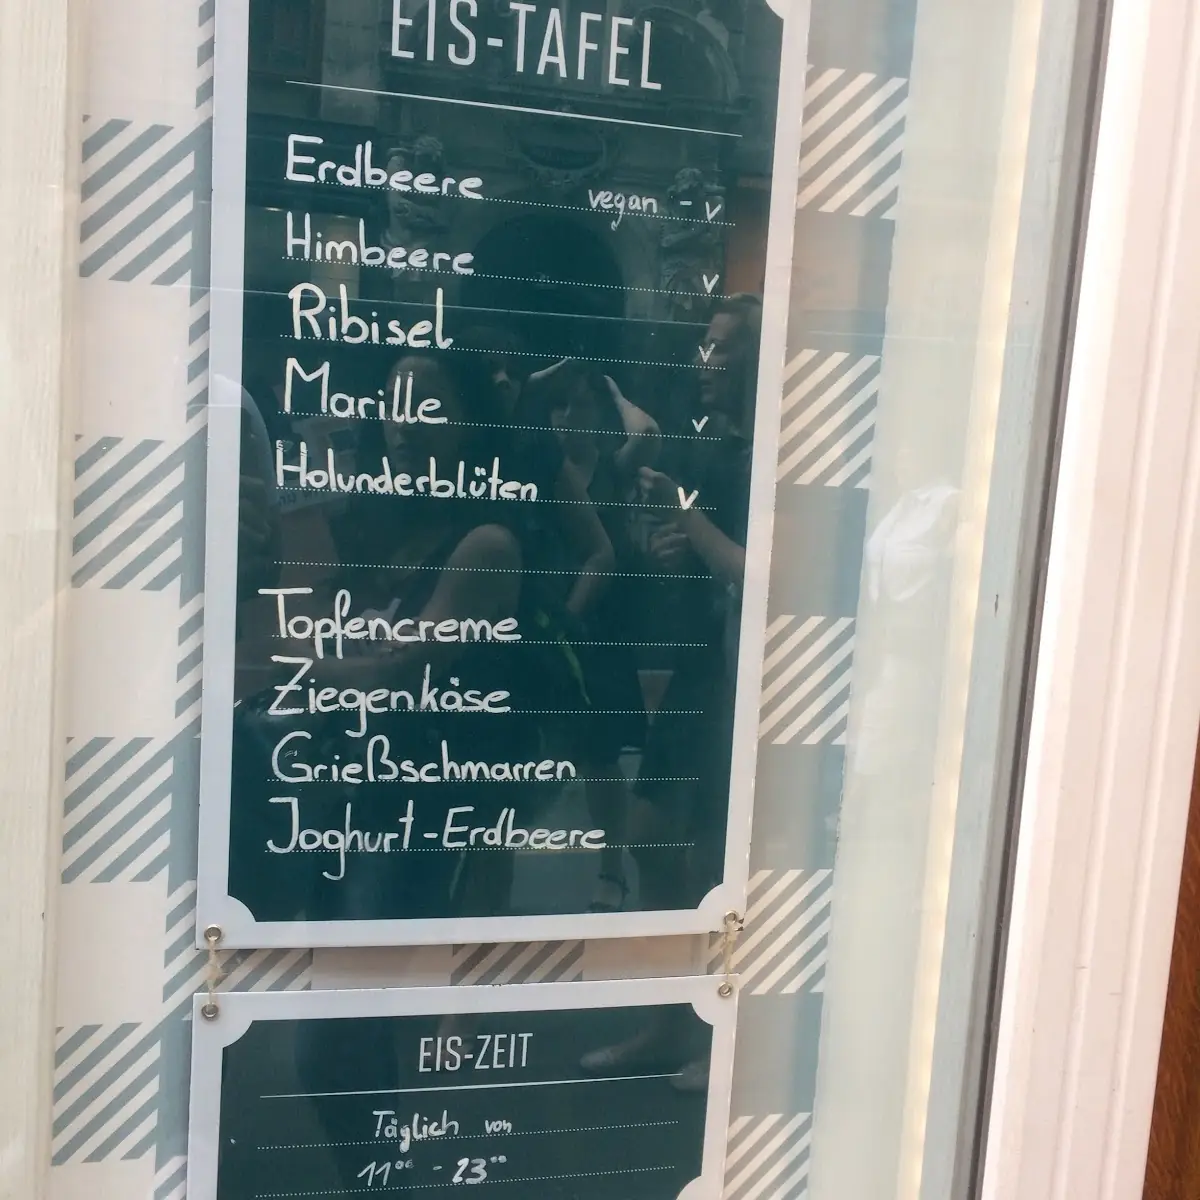 EIS-TAFEL
Erdbeere vegan - v
Himbeere v
Ribisel v
Marille v
Holunderblüten v
Topfencreme
Ziegenkäse
Grießschmarren
Joghurt-Erdbeere
EIS-ZEIT
Täglich von
11⁰⁰ - 23⁰⁰